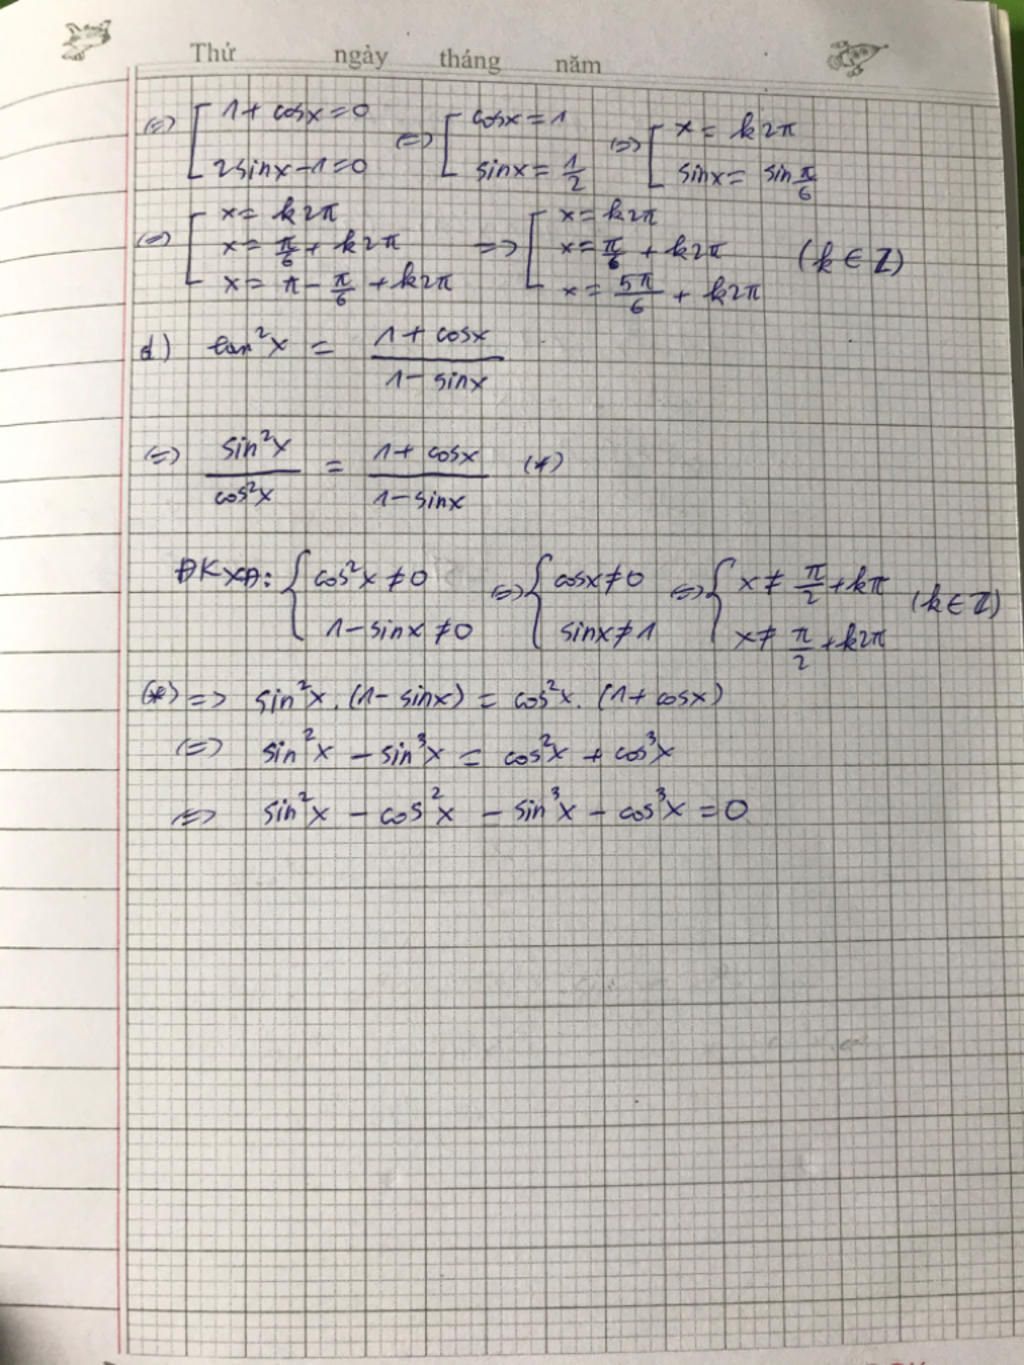 Thứ ngày tháng năm
(=) [ 1 + cosx = 0 (=) [ cosx = 1 (=) [ x = k2π
2sinx - 1 = 0 sinx = 1/2 sinx = sin π/6
(=) [ x = k2π => [ x = k2π
x = π/6 + k2π x = π/6 + k2π (k ∈ Z)
x = π - π/6 + k2π x = 5π/6 + k2π
d) tan²x = (1 + cosx)/(1 - sinx)
(=) sin²x/cos²x = (1 + cosx)/(1 - sinx) (*)
ĐKXĐ: { cos²x ≠ 0 (=) { cosx ≠ 0 (=) { x ≠ π/2 + kπ (k ∈ Z)
1 - sinx ≠ 0 sinx ≠ 1 x ≠ π/2 + k2π
(*) => sin²x . (1 - sinx) = cos²x . (1 + cosx)
(=) sin²x - sin³x = cos²x + cos³x
(=) sin²x - cos²x - sin³x - cos³x = 0